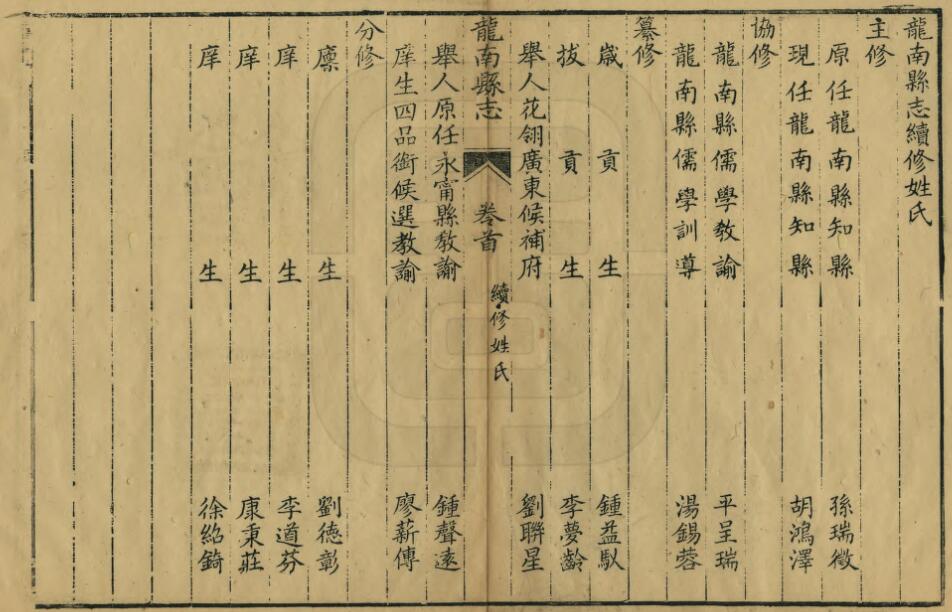 龍南縣志續修姓氏
主修
原任龍南縣知縣 孫瑞徵
現任龍南縣知縣 胡鴻澤
協修
龍南縣儒學教諭 平呈瑞
龍南縣儒學訓導 湯錫蓉
纂修
歲貢生 鍾益馭
拔貢生 李夢齡
舉人花翎廣東候補府 劉聯星
龍南縣志 卷首 續修姓氏
舉人原任永甯縣教諭 鍾聲遠
庠生四品銜候選教諭 廖薪傳
分修
廩生 劉德彰
庠生 李道芬
庠生 康秉莊
庠生 徐紹錡